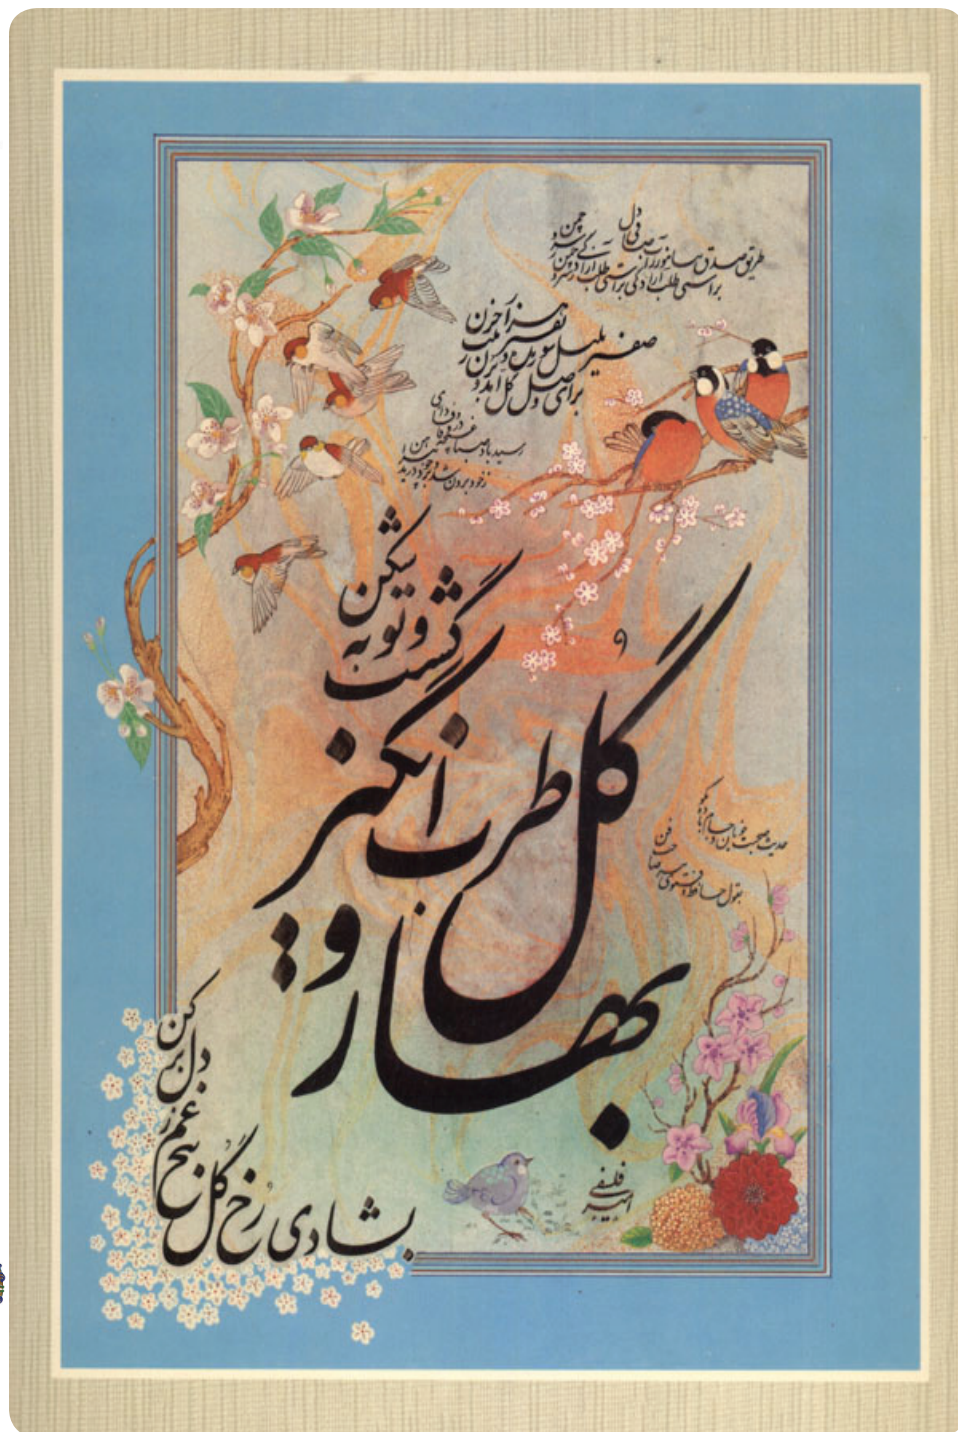 طریق صدق بیاموز از آب صافی دل
براستی طلب آزادگی ز سرو چمن
صفیر بلبل شوریده و نفیر هزار
برای وصل گل آمد برون ز بیت حزن
رسید باد صبا غنچه در هواداری
زخود برون شد و بر خود درید پیراهن
بهار و گل طرب انگیز گشت و توبه شکن
بشادی رخ گل بیخ غم ز دل برکن
حدیث صحبت خوبان و جام باده بگو
بقول حافظ و فتوی پیر صاحب فن
امیر فلسفی